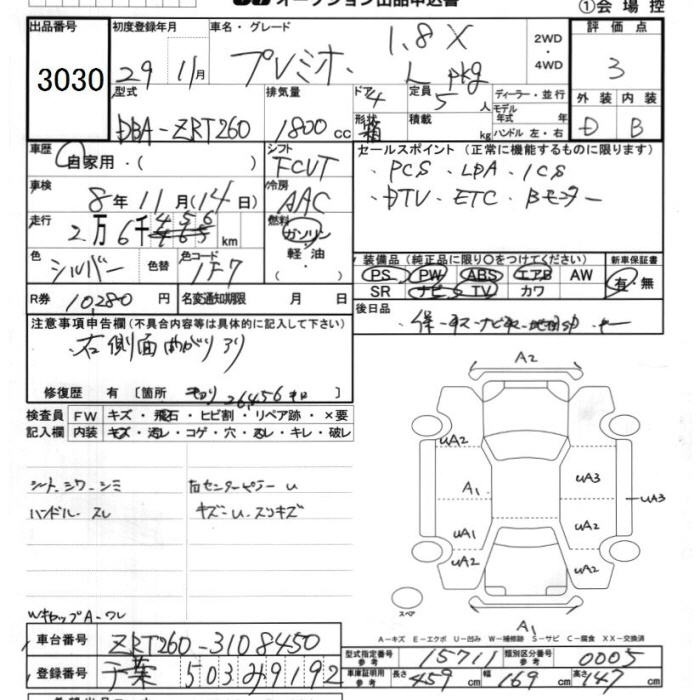 オークション出品申込書
①会場控
出品番号 初度登録年月 車名・グレード 評価点
3030 29 11月 プレミオ 1.8X L pkg 2WD・4WD 3
型式 排気量 ドア 定員 ディーラー・並行 外装 内装
DBA-ZRT260 1800cc 4 5人 モデル年式 年式 D B
形状 箱 積載 kg ハンドル 左・右
車歴 自家用・( ) シフト FCVT セールスポイント(正常に機能するものに限ります)
車検 8年11月(14日) 冷房 AAC ・PCS・LDA・ICS
・DTV・ETC・Bモニター
走行 2万6千456km 燃料 ガソリン・軽油・
色 シルバー 色替 色コード 1F7
装備品(純正品に限り○をつけてください) 新車保証書
PS PW ABS エアB AW 有・無
SR ナビ TV カワ
R券 10,280円 名変通知期限 月 日
後日品
注意事項申告欄(不具合内容等は具体的に記入して下さい)
右側面
修復歴 有 [箇所 26,456
検査員 FW キズ・飛石・ヒビ割・リペア跡・×要
記入欄 内装 キズ・汚レ・コゲ・穴・忘レ・キレ・破レ
シート.シワ-シミ 右センターピラーU
ハンドル.スレ キズ-U.スリキズ
WキャップA-ワレ
A2
UA2
UA3
A1
UA3
UA1
UA2
UA2
UA2
スペア
A1
A-キズ E-エクボ U-凹み W-補修跡 S-サビ C-腐食 XX-交換済
車台番号 ZRT260-3108450
登録番号 千葉503み9192
型式指定番号 参考 15711 類別区分番号 参考 0005
車庫証明用 参考 長さ 459cm 幅 169cm 高さ 147cm